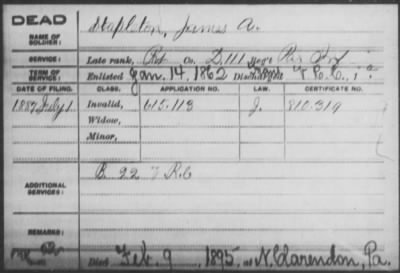 DEAD
NAME OF SOLDIER: Stapleton, James A.
SERVICE: Late rank, Pvt Co. D, 111 Reg't Pa. Inf
TERM OF SERVICE: Enlisted Jan. 14, 1862 Discharged
DATE OF FILING. CLASS. APPLICATION NO. LAW. CERTIFICATE NO.
1887 July 1 Invalid, 615.113 J. 810.319
Widow,
Minor,
ADDITIONAL SERVICES: B. 22 V.R.C
REMARKS:
Died Feb. 9, 1895, at N. Clarendon, Pa.